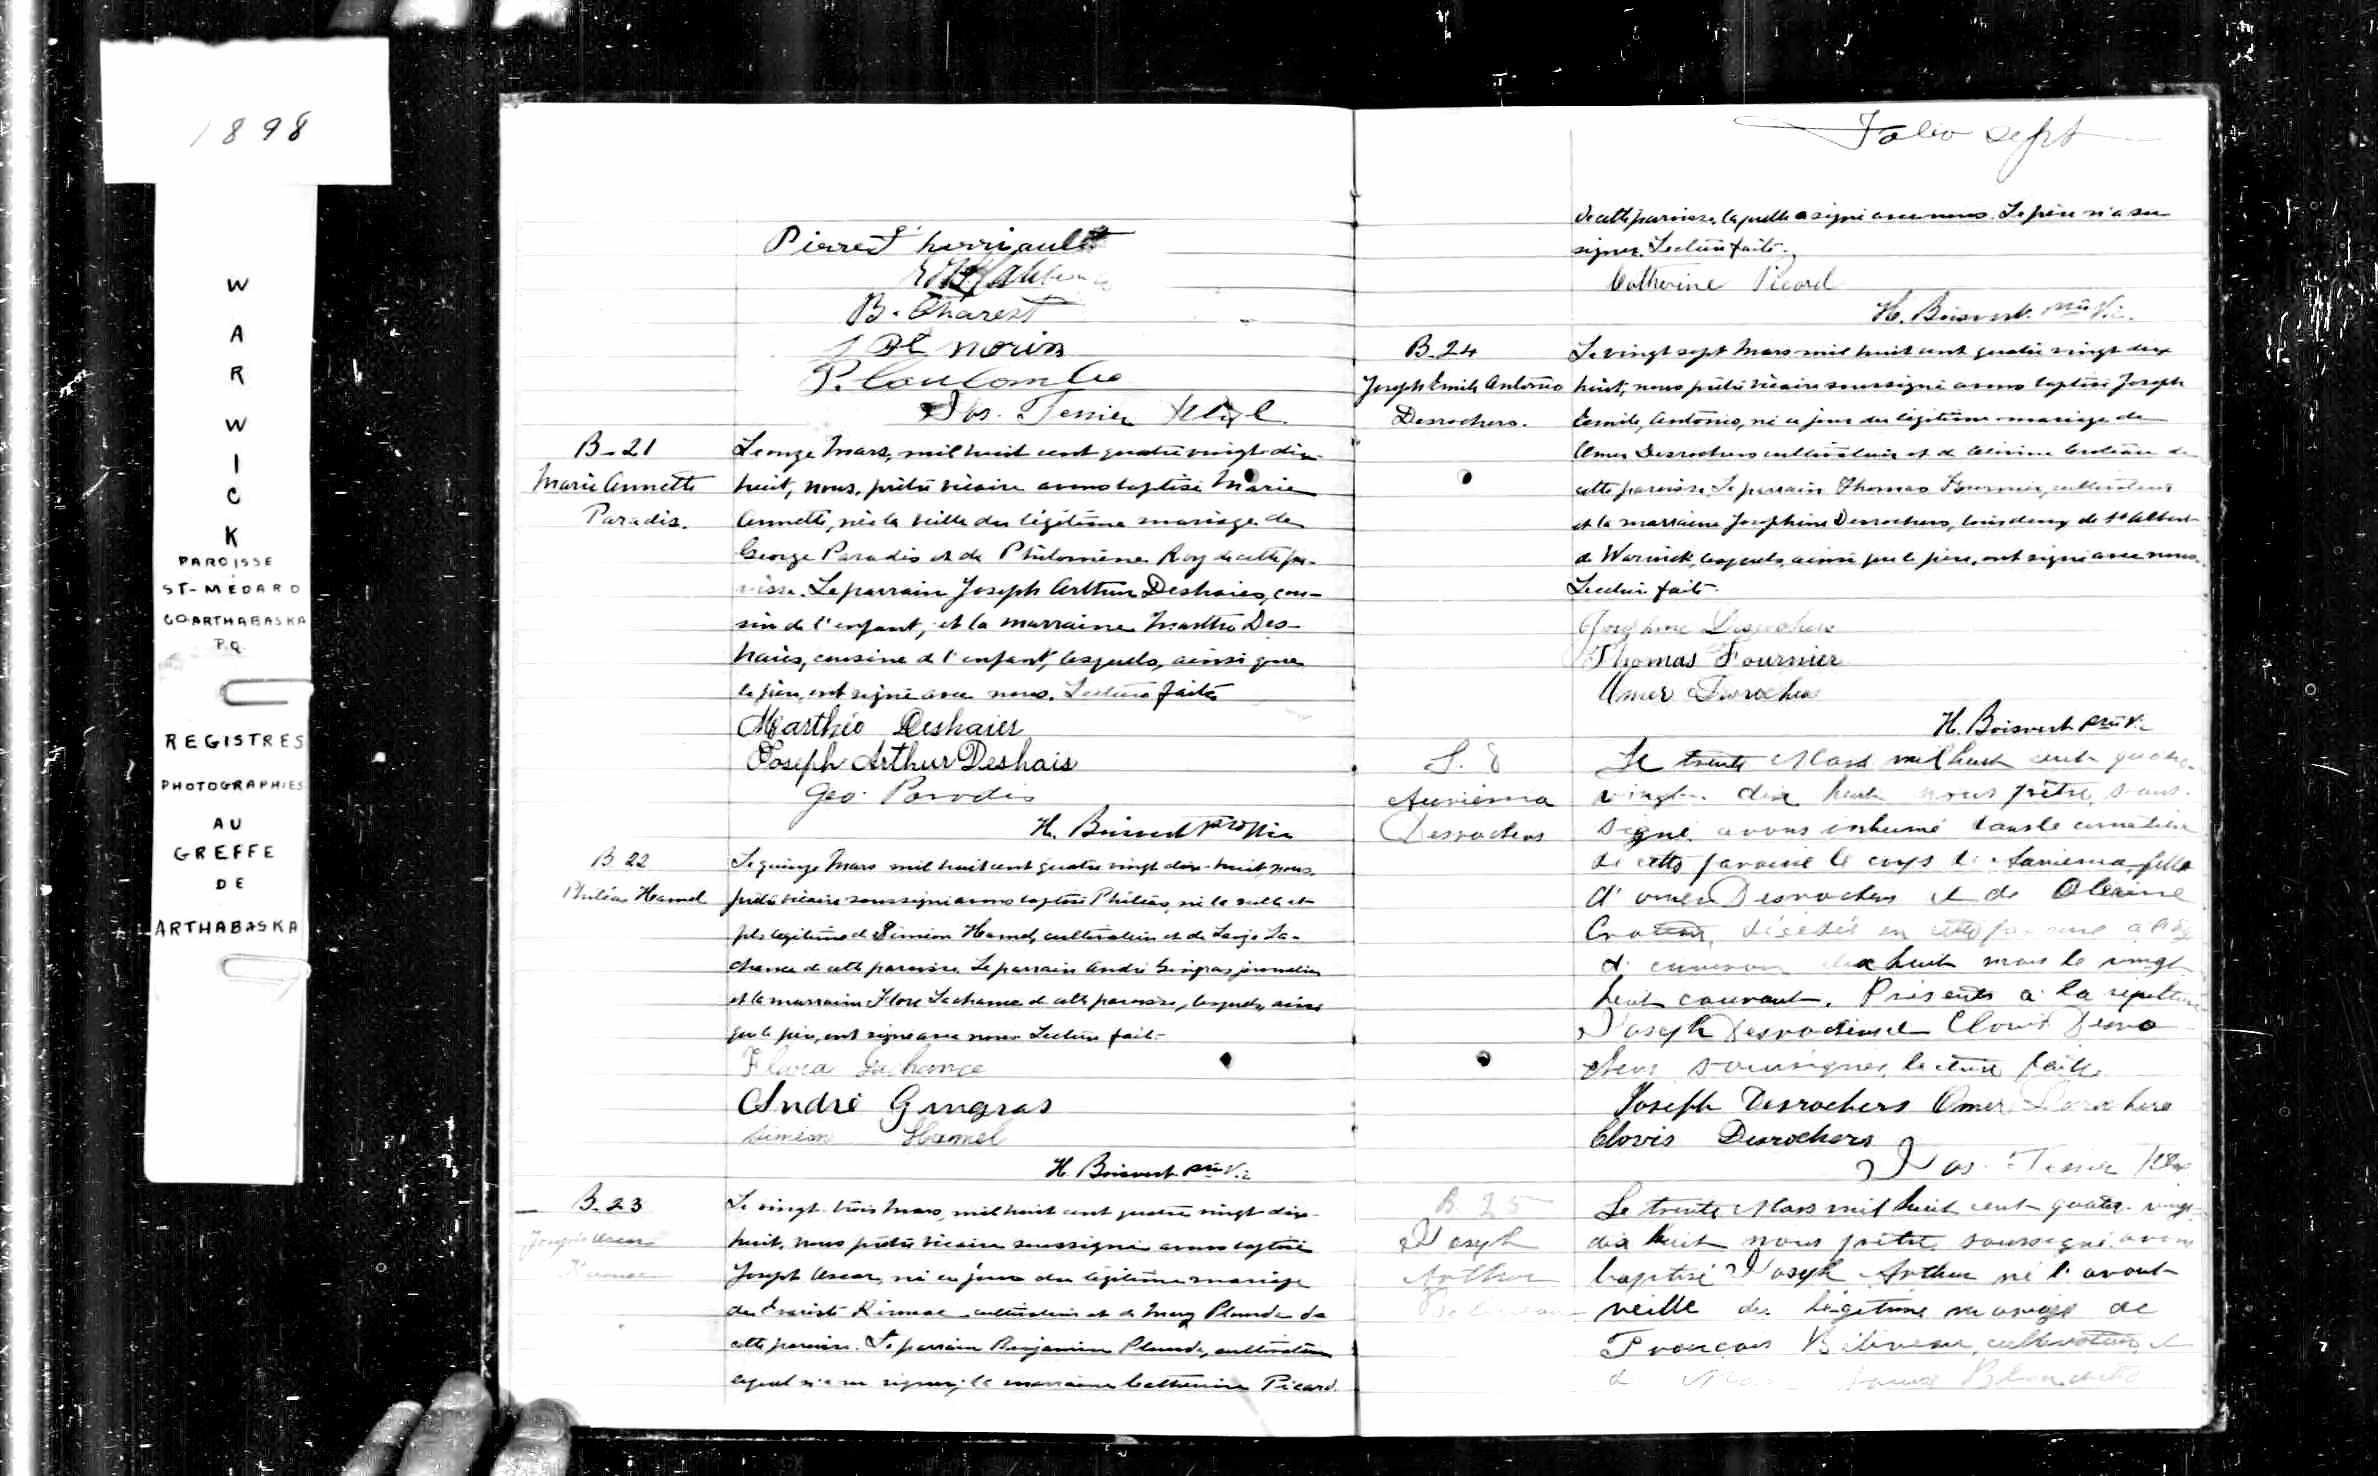 1898
WARWICK
PAROISSE
ST-MÉDARD
CO. ARTHABASKA
P.Q.
REGISTRES
PHOTOGRAPHIES
AU
GREFFE
DE
ARTHABASKA
Pierre Therriault
B. Charest
Morin
P. Coulombe
Jos. Tessier
B-21
Marie Annette
Paradis.
Le onze Mars, mil huit cent quatre vingt dix-
huit, nous, prêtre vicaire avons baptisé Marie
Annette, née la veille du légitime mariage de
George Paradis et de Philomène Roy de cette pa-
roisse. Le parrain Joseph Arthur Deshaies, cou-
sin de l'enfant, et la marraine Martha Des-
haies, cousine de l'enfant, lesquels, ainsi que
le père, ont signé avec nous. Lecture faite
Marthéo Deshaies
Joseph Arthur Deshais
Geo. Paradis
H. Boisvert ptre Vic
B 22
Philéas Hamel
Le quinze Mars mil huit cent quatre vingt dix-huit, nous
prêtre vicaire soussigné avons baptisé Philéas, né la veille et
fils légitime de Siméon Hamel, cultivateur et de La-
chance de cette paroisse. Le parrain André Gingras journalier
et la marraine Flore Lachance de cette paroisse, lesquels, ainsi
que le père, ont signé avec nous Lecture faite-
Flora Lachance
André Gingras
Siméon Hamel
H. Boisvert ptre V.
B. 23
Joseph Oscar
Le vingt-trois Mars, mil huit cent quatre vingt dix-
huit, nous prêtre vicaire soussigné avons baptisé
Joseph Oscar, né ce jour du légitime mariage
de Evariste cultivateur et de Mary Plourde de
cette paroisse. Le parrain Benjamin Plourde, cultivateur
lequel n'a su signer; la marraine Catherine Picard
Folio sept
de cette paroisse, laquelle a signé avec nous. Le père n'a su
signer. Lecture faite.
Catherine Picard
H. Boisvert ptre V.
B-24
Joseph Emile Antonio
Desrochers.
Le vingt sept Mars mil huit cent quatre vingt dix
huit, nous prêtre vicaire soussigné avons baptisé Joseph
Emile, Antonio, né ce jour du légitime mariage de
Omer Desrochers cultivateur et de Croteau de
cette paroisse. Le parrain Thomas Fournier, cultivateur
et la marraine Joséphine Desrochers, tous deux de St Albert
de Warwick lesquels, ainsi que le père, ont signé avec nous.
Lecture faite.
Josephine Desrochers
Thomas Fournier
Omer Desrochers
H. Boisvert ptre V.
S. 8
Desrochers
Le trente Mars mil huit cent quatre
vingt-dix huit nous prêtre, sous-
signé avons inhumé dans le cimetière
de cette paroisse le corps de fille
d'Omer Desrochers et de
Croteau, décédée en cette paroisse âgée
d'environ dix huit mois le vingt
huit courant. Présents à la sépulture
Joseph Desrochers et Clovis Desro
chers soussignés, lecture faite.
Joseph Desrochers Omer Desrochers
Clovis Desrochers
Jos. Tessier
B. 25
Joseph
Arthur
Le trente Mars mil huit cent quatre-vingt
dix huit nous prêtre soussigné avons
baptisé Joseph Arthur né l'avant
veille du légitime mariage de
François Béliveau, cultivateur, et
de Blanchette